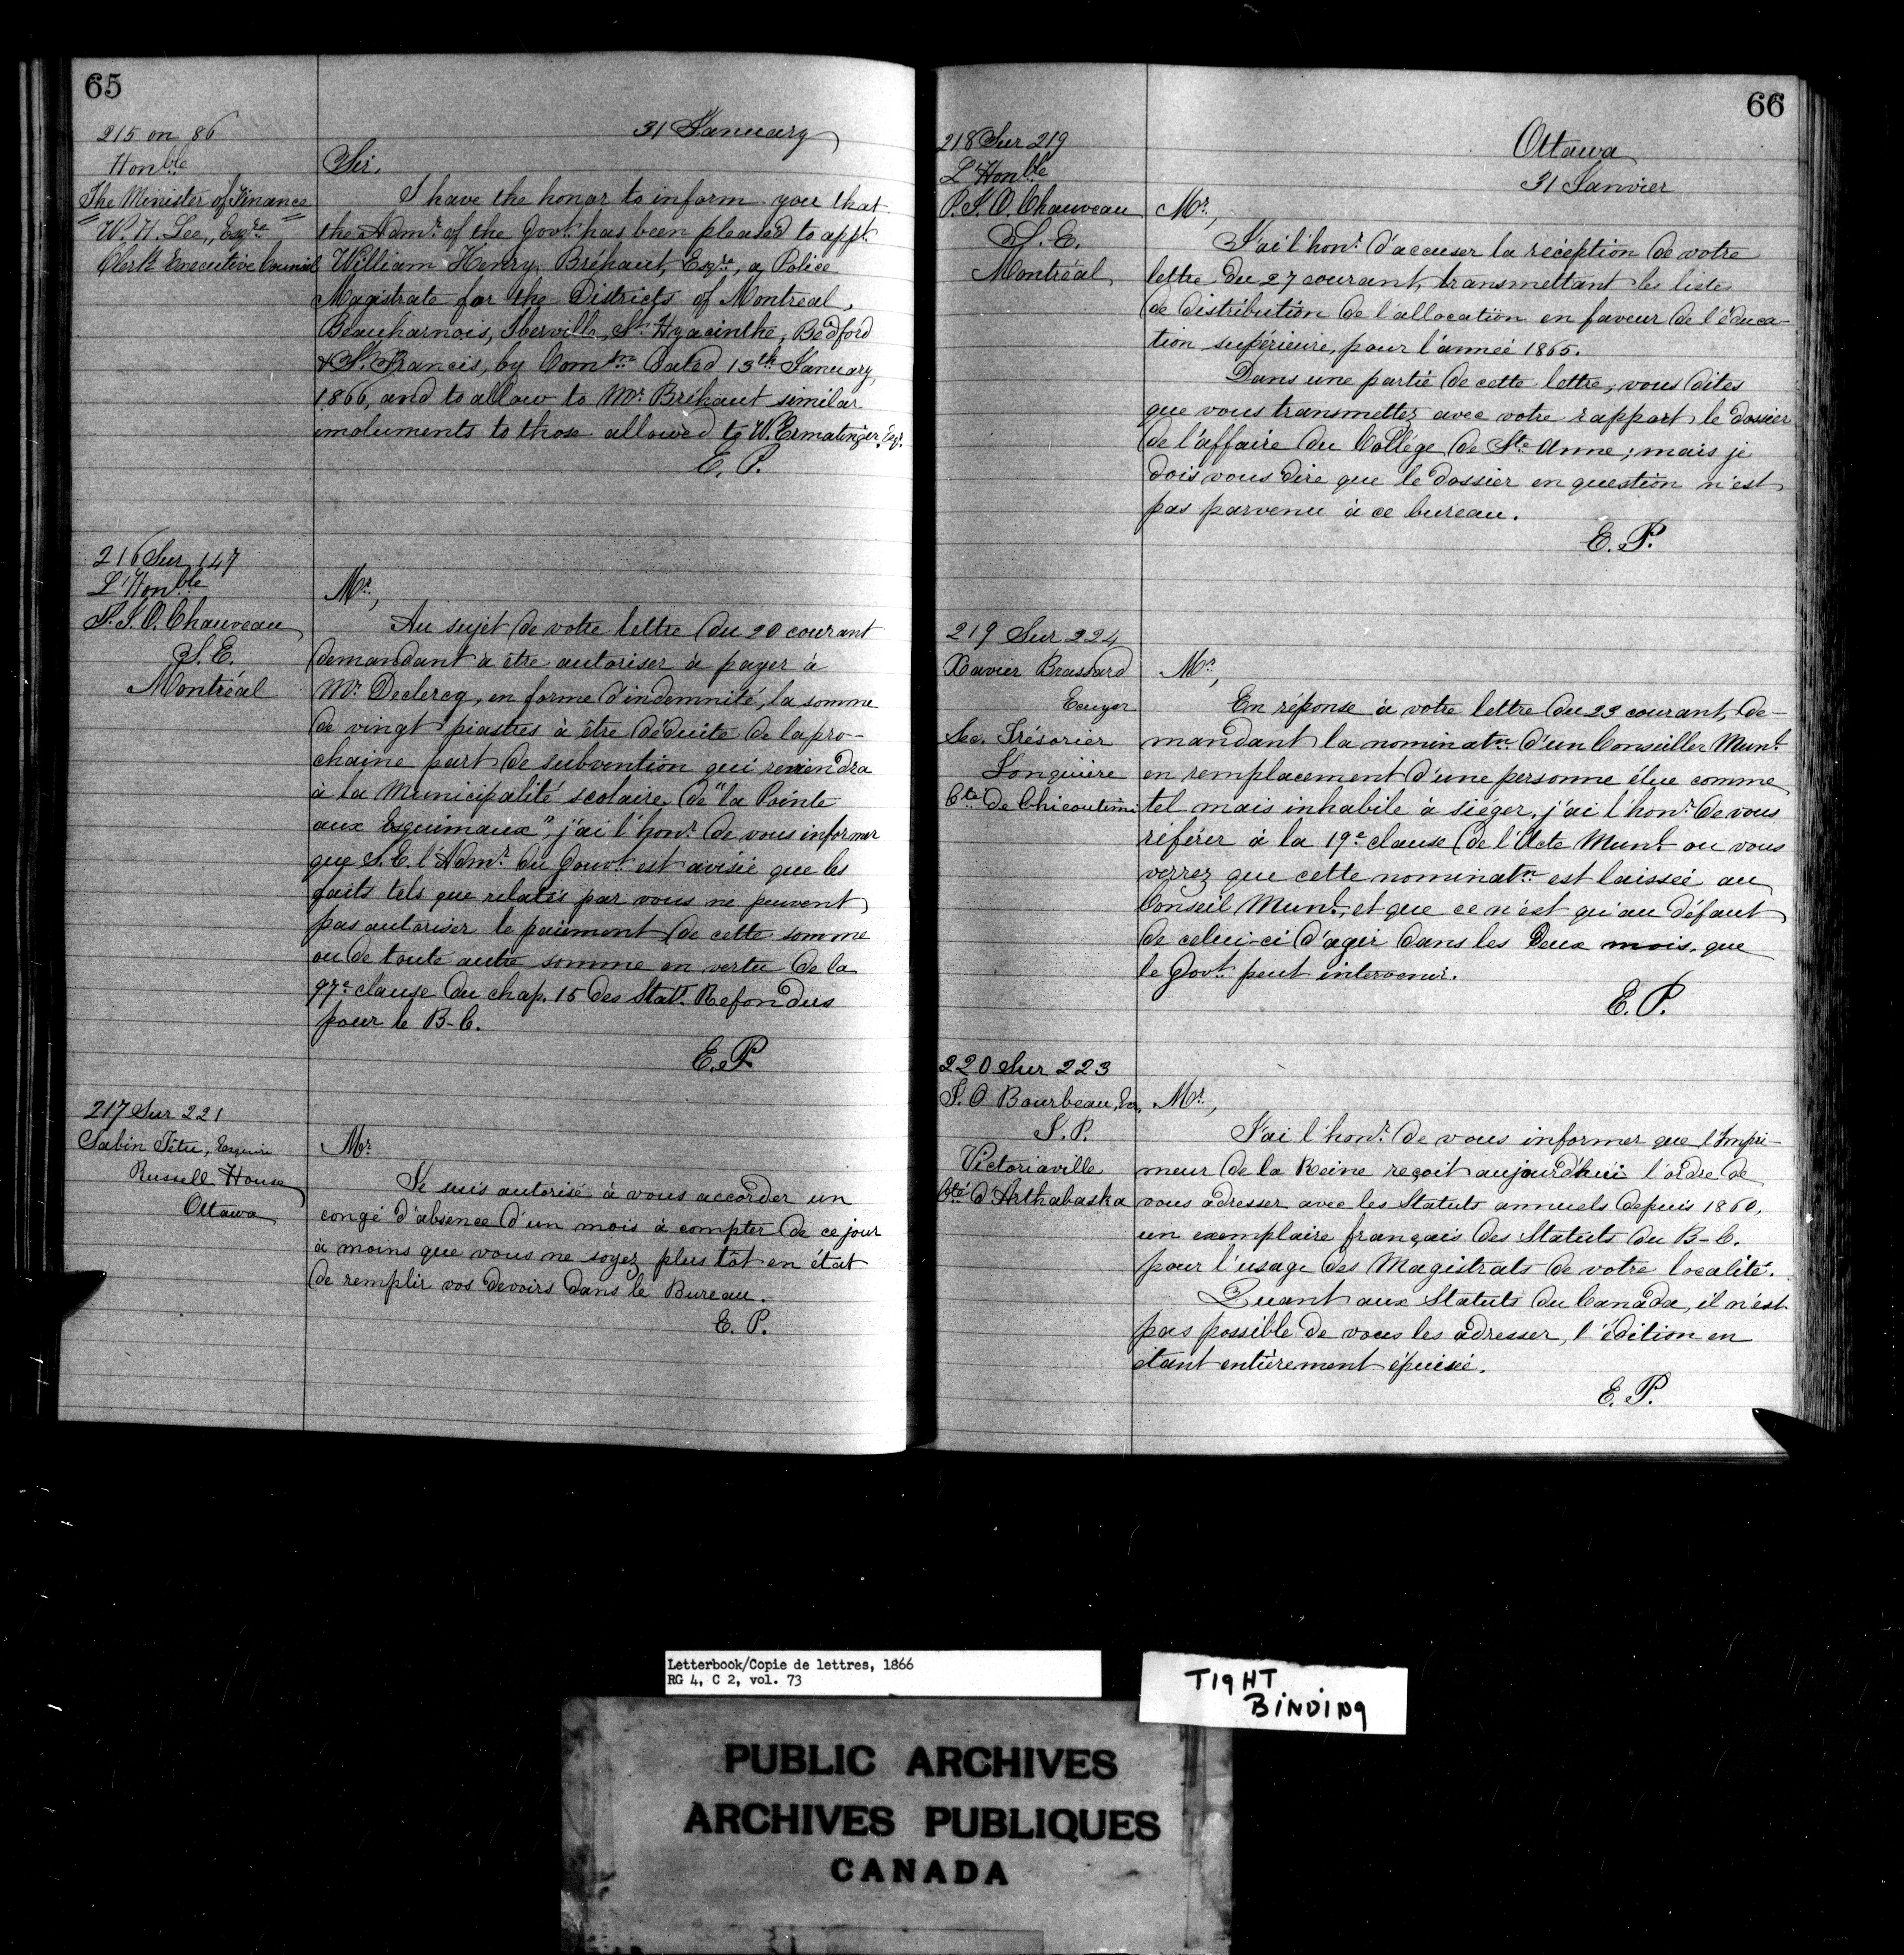 65
215 on 86
Honble
The Minister of Finance
W. H. Lee, Esqre
Clerk Executive Council
31 January
Sir,
I have the honor to inform you that
the Admr. of the Govt. has been pleased to appt.
William Henry Bréhaut, Esqre, a Police
Magistrate for the Districts of Montreal,
Beauharnois, Iberville, St. Hyacinthe, Bedford
& St. Francis, by Comm dated 13th January,
1866, and to allow to Mr. Bréhaut similar
emoluments to those allowed to W. Ermatinger, Esqr.
E. P.
216 Sur 147
L'Honble
P. J. O. Chauveau
S. E.
Montréal
Mr,
Au sujet de votre lettre du 20 courant
demandant à être autoriser à payer à
Mr Declercq, en forme d'indemnité, la somme
de vingt piastres à être déduite de la pro-
chaine part de subvention qui reviendra
à la Municipalité scolaire de "la Pointe
aux Esquimaux", j'ai l'honr. de vous informer
que S. E. l'Admr. du Gouvt. est avisié que les
faits tels que relatés par vous ne peuvent
pas autoriser le paiement de cette somme
ou de toute autre somme en vertu de la
97e clause du chap. 15 des Statt. Refondus
pour le B-C.
E. P.
217 Sur 221
Sabin Têtu, Esquire
Russell House
Ottawa
Mr
Je suis autorisé à vous accorder un
congé d'absence d'un mois à compter de ce jour
à moins que vous ne soyez plus tôt en état
de remplir vos devoirs dans le Bureau.
E. P.
66
218 Sur 219
L'Honble
P. J. O. Chauveau
S. E.
Montréal
Ottawa
31 Janvier
Mr,
J'ai l'honr. d'accuser la réception de votre
lettre du 27 courant, transmettant les listes
de distribution de l'allocation en faveur de l'éduca-
tion supérieure, pour l'année 1865.
Dans une partie de cette lettre, vous dites
que vous transmettez avec votre rapport le dossier
de l'affaire du Collége de Ste Anne; mais je
dois vous dire que le dossier en question n'est
pas parvenu à ce bureau.
E. P.
219 Sur 224
Xavier Brassard
Ecuyer
Sec. Trésorier
Jonquière
Cté de Chicoutimi
Mr,
En réponse à votre lettre du 23 courant, de-
mandant la nominatn d'un Conseiller Munl.
en remplacement d'une personne élue comme
tel mais inhabile à siéger, j'ai l'honr. de vous
référer à la 19e clause de l'Acte Munl. ou vous
verrez que cette nominatn est laissée au
Conseil Munl., et que ce n'est qu'au défaut
de celui-ci d'agir dans les deux mois, que
le Govt. peut intervenir.
E. P.
220 Sur 223
J. O Bourbeau, Ecr.
J. P.
Victoriaville
Cté d'Arthabaska
Mr,
J'ai l'honr. de vous informer que l'Impri-
meur de la Reine reçoit aujourd'hui l'ordre de
vous adresser avec les Statuts annuels depuis 1860,
un exemplaire français des Statuts du B-C.
pour l'usage des Magistrats de votre localité.
Quant aux Statuts du Canada, il n'est
pas possible de vous les adresser, l'édition en
étant entièrement épuisée.
E. P.
Letterbook/Copie de lettres, 1866
RG 4, C 2, vol. 73
TIGHT
BINDING
PUBLIC ARCHIVES
ARCHIVES PUBLIQUES
CANADA